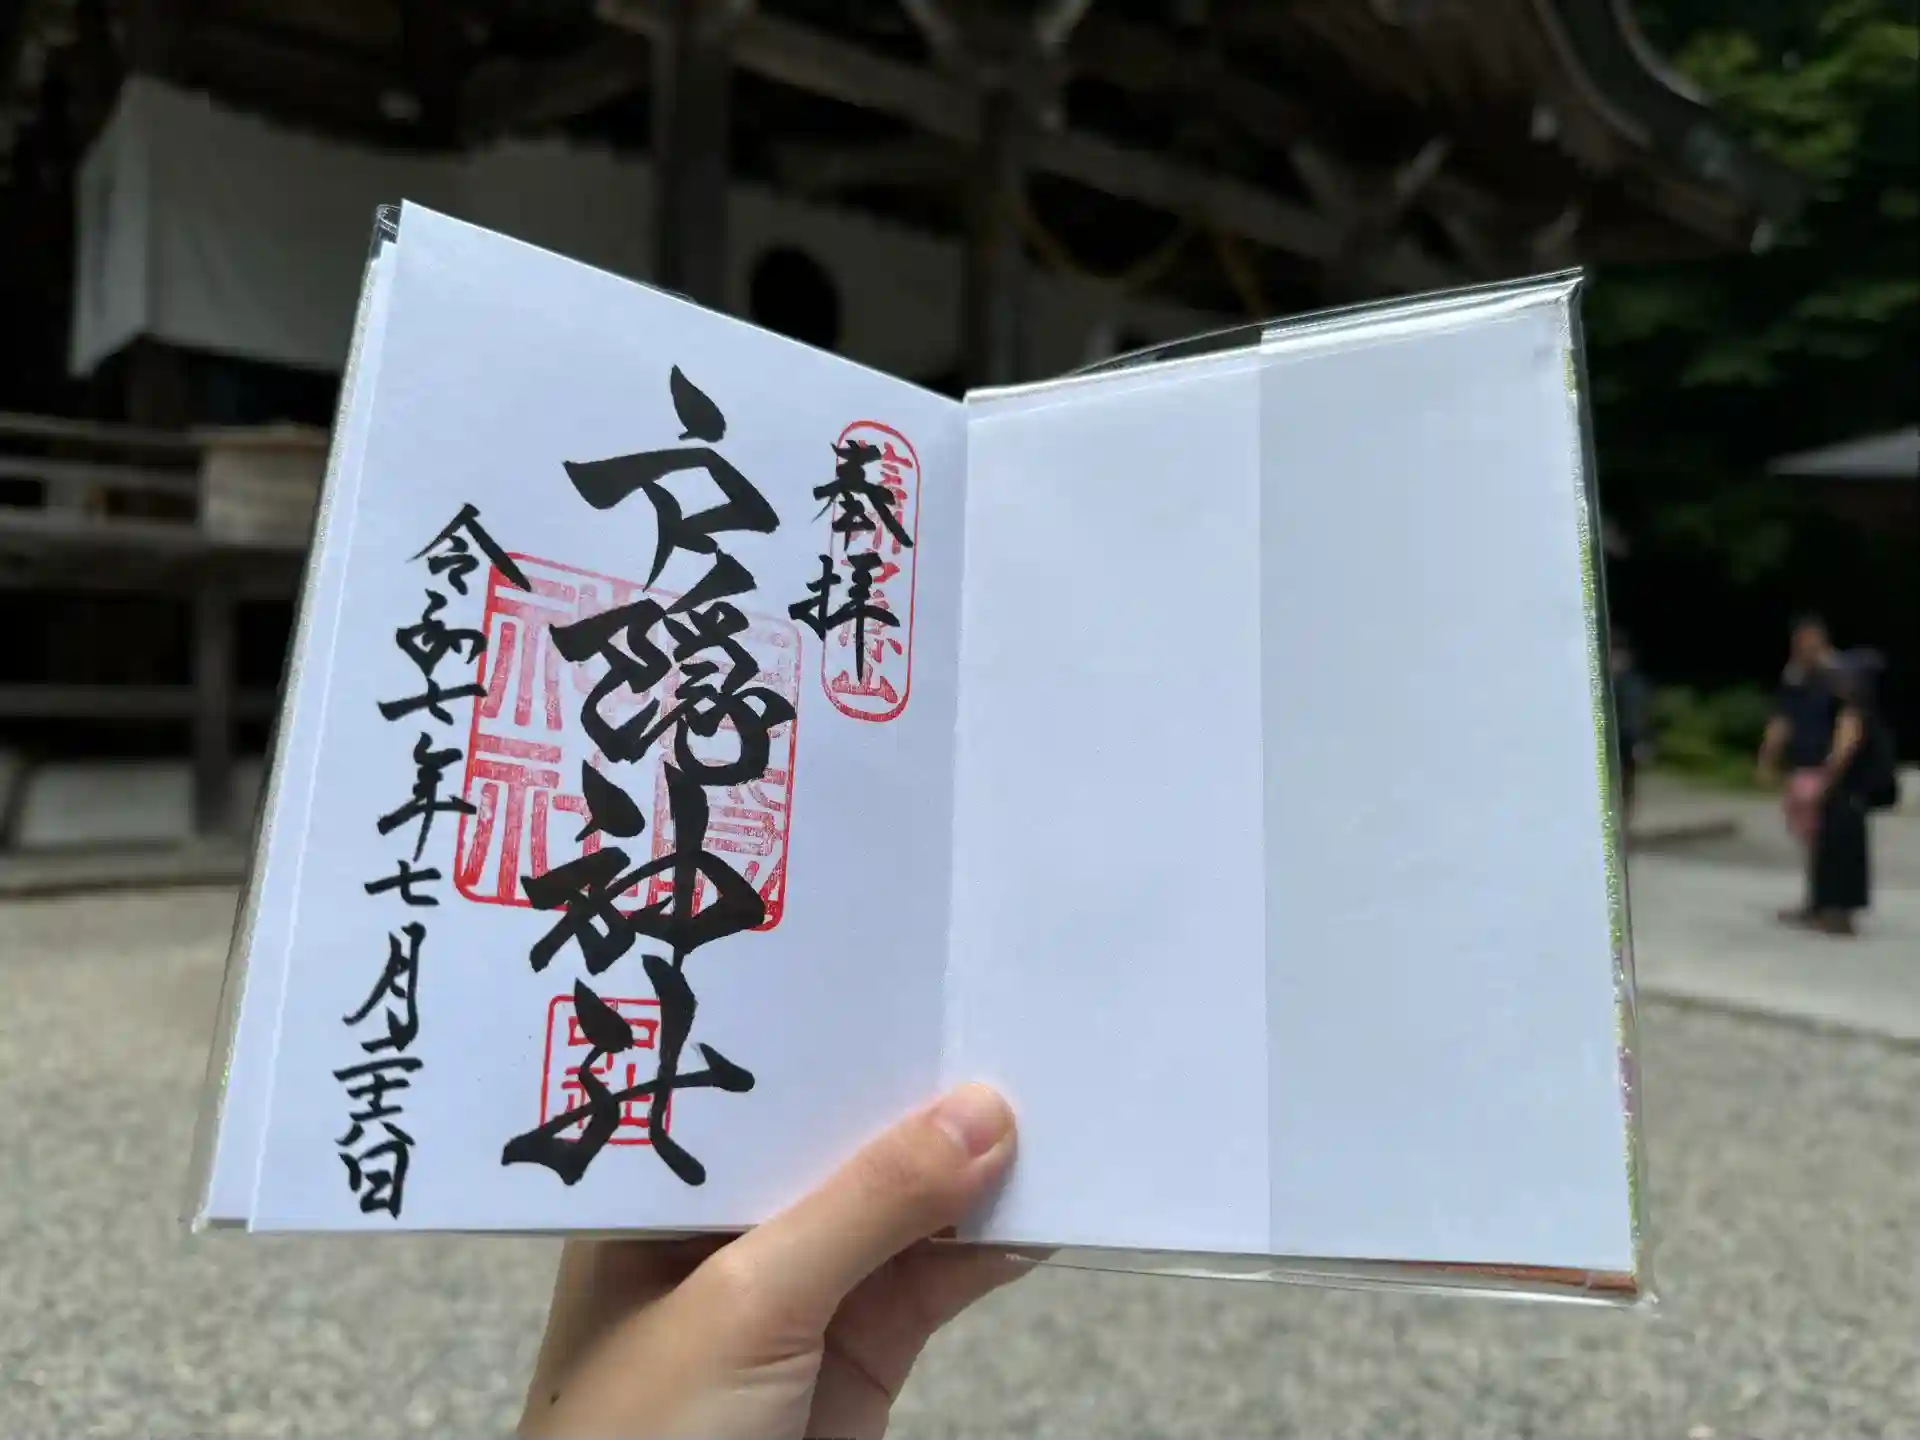 奉拝
信州戸隠山
戸隠神社
戸隠神社
中社
令和七年七月二十六日